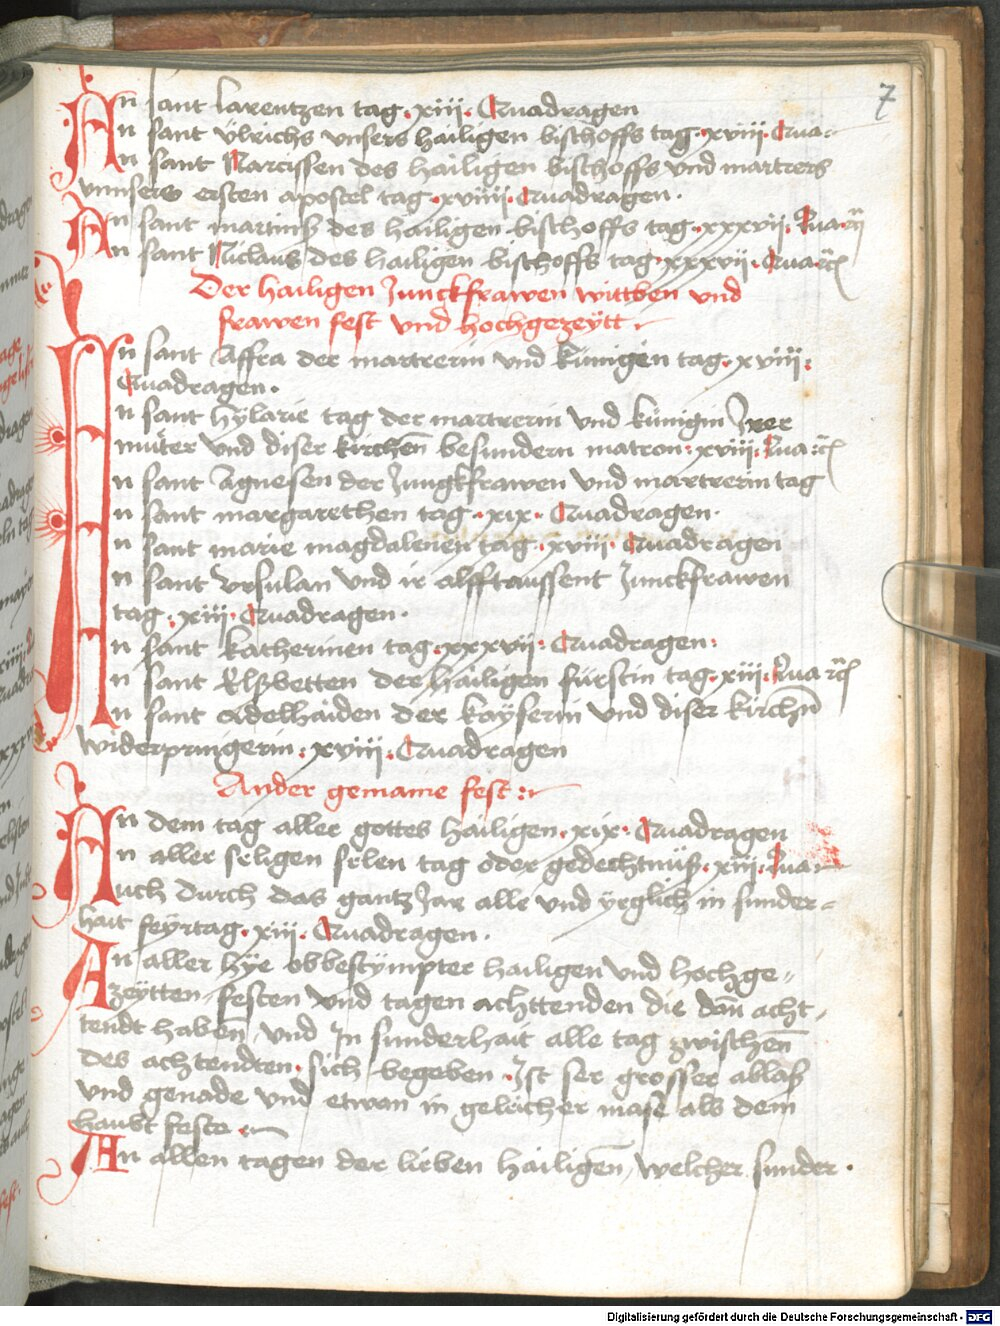 7
An sant larentzen tag · xiii · Quadragen
An sant Ulrichs unsers hailigen bischoffs tag · xviii · Qua-
An sant Narcissen des hailigen bischoffs und martrers
unnsers ersten apostel tag · xviiii · Quadragen ·
An sant martinß des hailigen bischoffs tag · xxxvii · Qua
An sant Niclaus des hailigen bischoffs tag · xxxvii · Qua
Der hailigen Junckfrawen wittben und
frawen fest und hochgezeÿtt ·
An sant Affra der martrerin und künigen tag · xviii ·
Quadragen ·
An sant hÿlarie tag der martrerin und künigin Jrer
muter und diser kirchen besundern matron · xviii · Qua
An sant Agnesen der Jungkfrawen und martrerin tag
An sant margarethen tag · xix · Quadragen ·
An sant marie magdalenen tag · xviii · Quadragen
An sant Ursulan und ir alfftaussent Junckfrawen
tag · xiii · Quadragen ·
An sant katherinen tag · xxxvii · Quadragen :
An sant Elßbetten der hailigen fürstin tag · xiii · Qua
An sant Adelhaiden der kaÿserin und diser kirchn̄
widerpringerin · xviii · Quadragen
Ander gemaine fest :
An dem tag aller gottes hailigen · xix · Quadragen
An aller seligen selen tag oder gedechtnüß · xiii · Qua
Auch durch das gantz Jar alle und ÿeglich in sunder=
hait feÿrtag · xiii · Quadragen ·
An aller hÿe obbestÿmpter hailigen und hochge=
zeÿtten festen und tagen achttenden die dan̄ acht=
tendt haben und Jn sunderhait alle tag zwischen̄
des achtendten sich begeben · Jst ser grosser ablaß
und genade und etwan in gelicher mase als dem
haubt feste ·
An allen tagen der lieben hailigen̄ welcher sunder ·
Digitalisierung gefördert durch die Deutsche Forschungsgemeinschaft - DFG